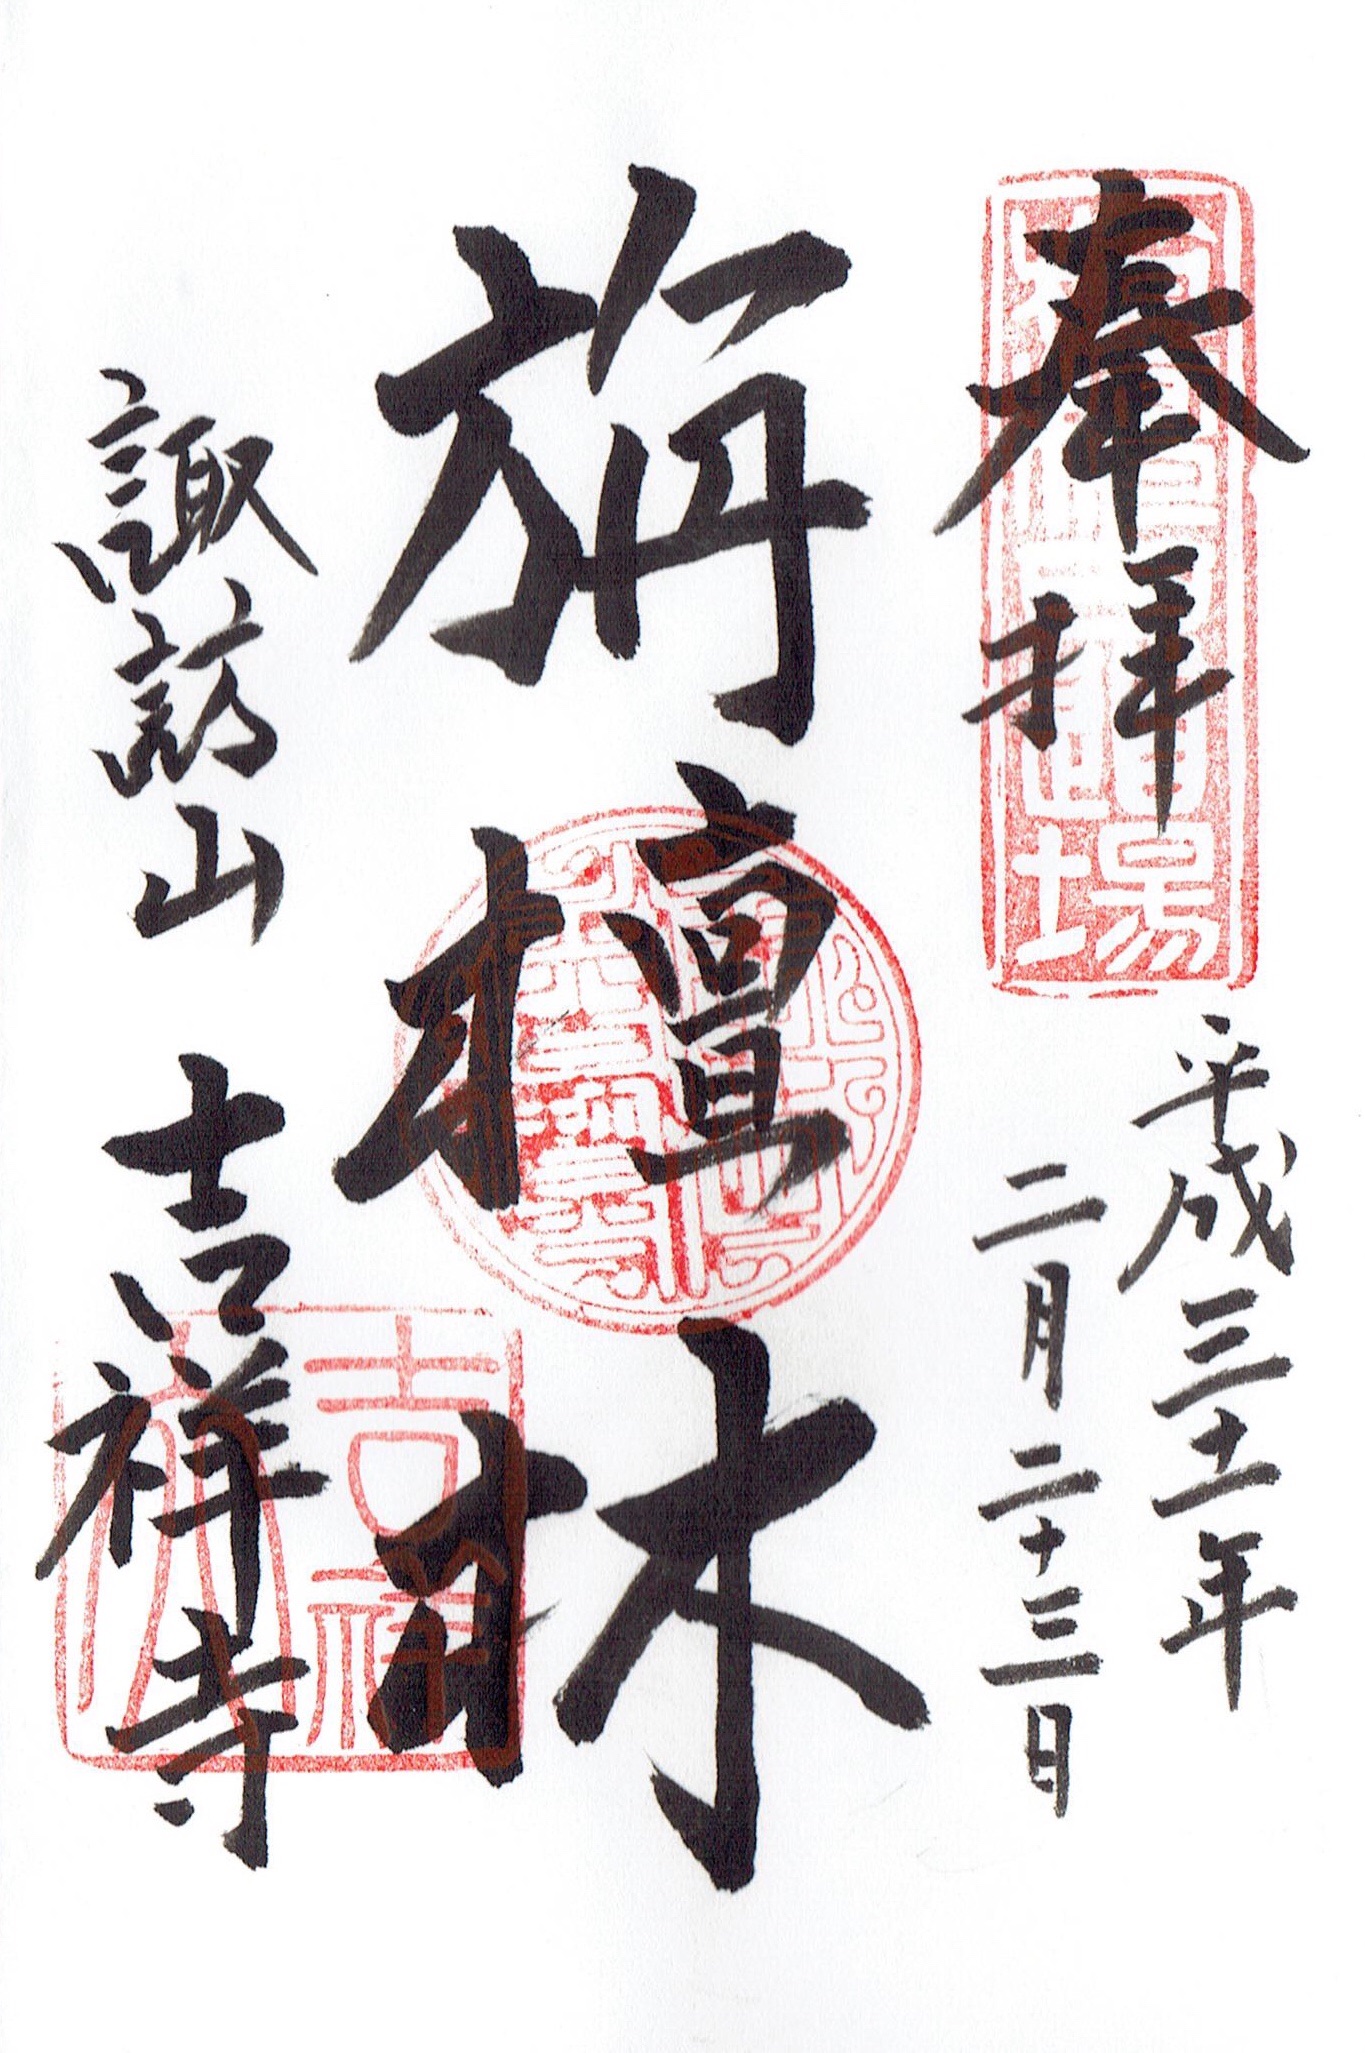 奉拝
平成三十一年
二月二十三日
旃檀林
諏訪山 吉祥寺
吉祥